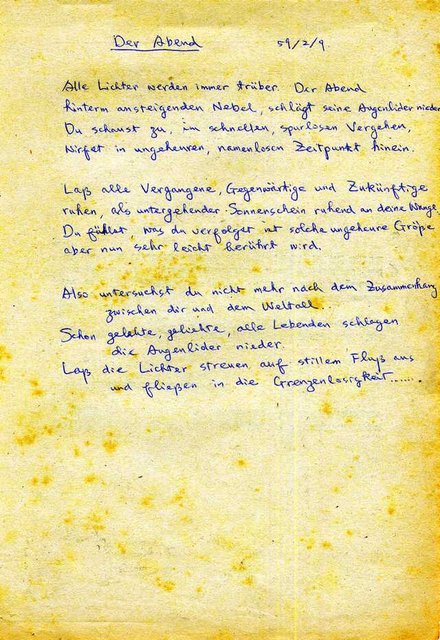 Der Abend 59/2/9
Alle Lichter werden immer trüber. Der Abend
hinterm ansteigenden Nebel, schlägt seine Augenlider nieder
Du schaust zu, im schnellen, spurlosen Vergehen,
wirfst in ungeheuren, namenlosen Zeitpunkt hinein.
Laß alle Vergangene, Gegenwärtige und Zukünftige
ruhen, als untergehender Sonnenschein ruhend an deine Wange
Du fühlst, was du verfolgst ist solche ungeheure Größe
aber nun sehr leicht berührt wird.
Also untersuchst du nicht mehr nach dem Zusammenhang
zwischen dir und dem Weltall...
Schon gelebte, geliebte, alle Lebenden schlagen
die Augenlider nieder.
Laß die Lichter streuen auf stillem Fluß aus
und fließen in die Grenzenlosigkeit.......